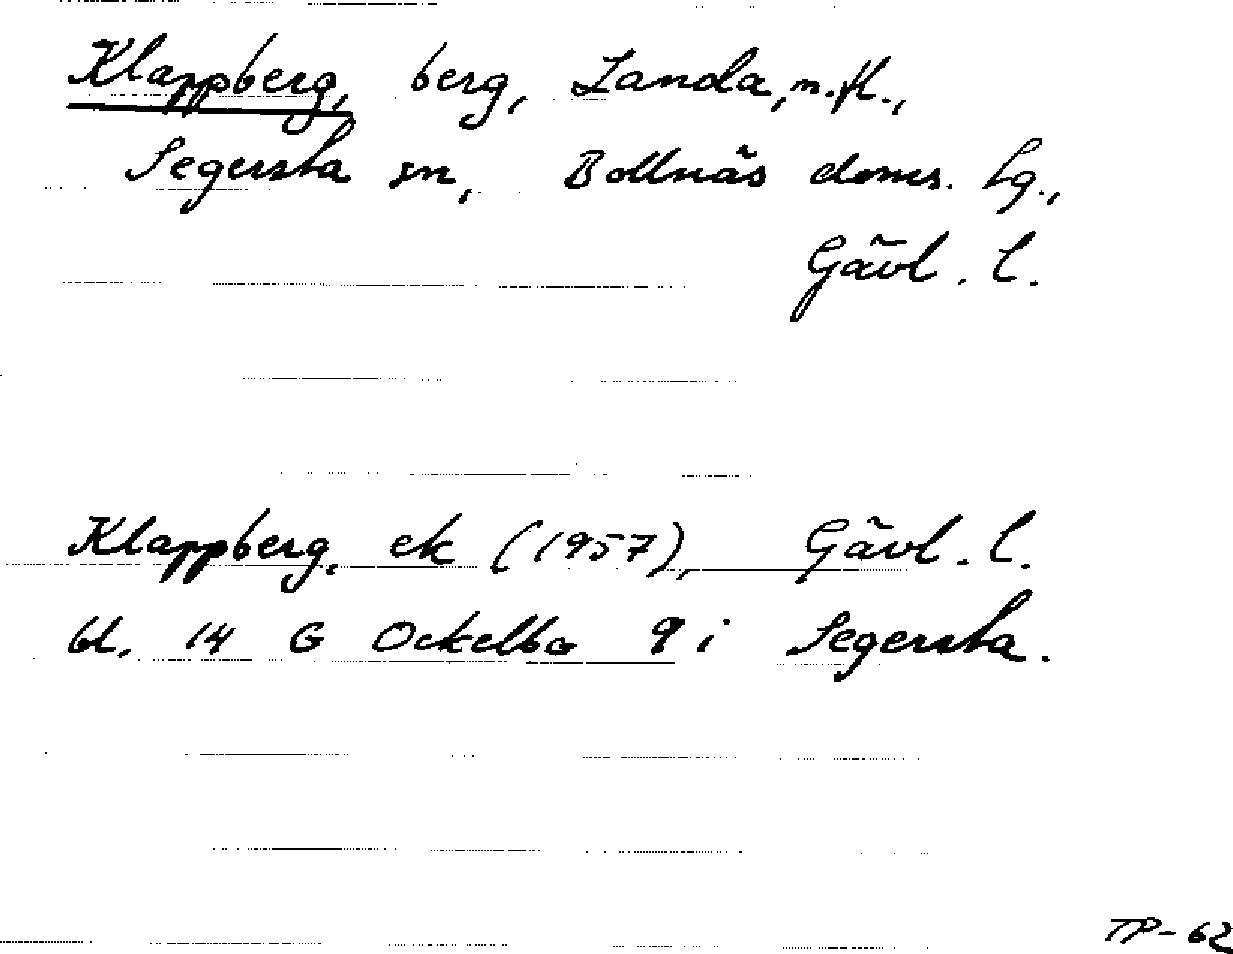 Klappberg, berg, Landa, m.fl.,
Segersta sn, Bollnäs doms. hg.,
Gävl. l.
Klappberg, ek (1957), Gävl. l.
bl. 14 G Ockelbo 9 i Segersta.
TP-62